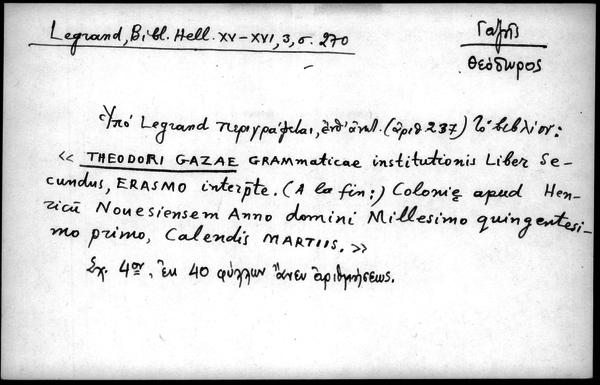 Legrand, Bibl. Hell. XV-XVI, 3, σ. 270
Γαζῆς
Θεόδωρος
Ὑπό Legrand περιγράφεται, ἐνθ' ἀνωτ. (ἀριθ 237) τό βιβλίον:
« THEODORI GAZAE GRAMMaticae institutionis Liber Se-
cundus, ERASMO interp̄te. (A la fin:) Colonię apud Hen-
ricū Nouesiensem Anno domini Millesimo quingentesi-
mo primo, Calendis MARTIIS. »
Σχ. 4ον, ἐκ 40 φύλλων ἄνευ ἀριθμήσεως.